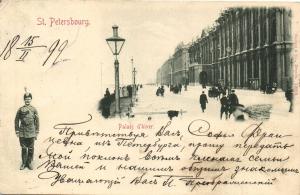 St. Petersbourg.
18 15/II 99
Palais d'hiver.
Приветствую Васъ, Софья Фран
цевна изъ Петербурга прошу передать
Мой поклонъ Всѣмъ
Вашей и нашимъ общимъ знакомымъ
Уважающій Васъ П.